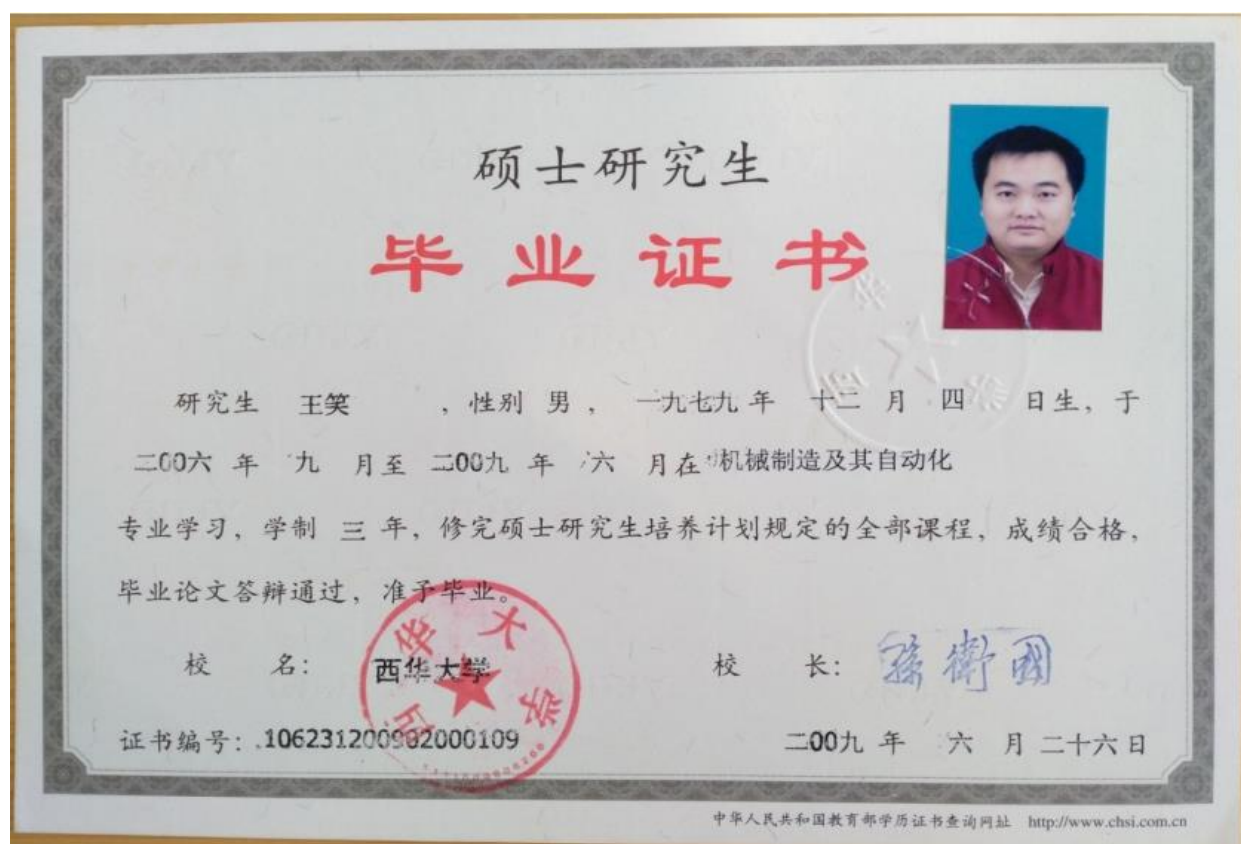 硕士研究生
毕业证书
研究生 王笑 ,性别 男, 一九七九年 十二 月 四 日生, 于
二00六 年 九 月至 二00九 年 六 月在 机械制造及其自动化
专业学习, 学制 三 年, 修完硕士研究生培养计划规定的全部课程, 成绩合格,
毕业论文答辩通过, 准予毕业。
校 名: 西华大学 校 长: 孫衛國
西华大学
证书编号: 106231200902000109 二00九 年 六 月 二十六 日
中华人民共和国教育部学历证书查询网址 http://www.chsi.com.cn